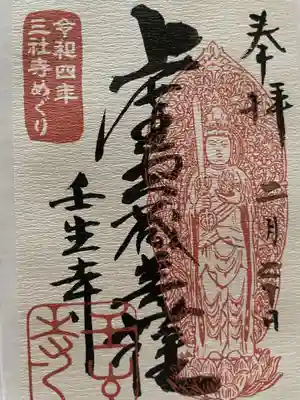 奉拝
二月二十日
虚空蔵菩薩
壬生寺
令和四年
三社寺めぐり